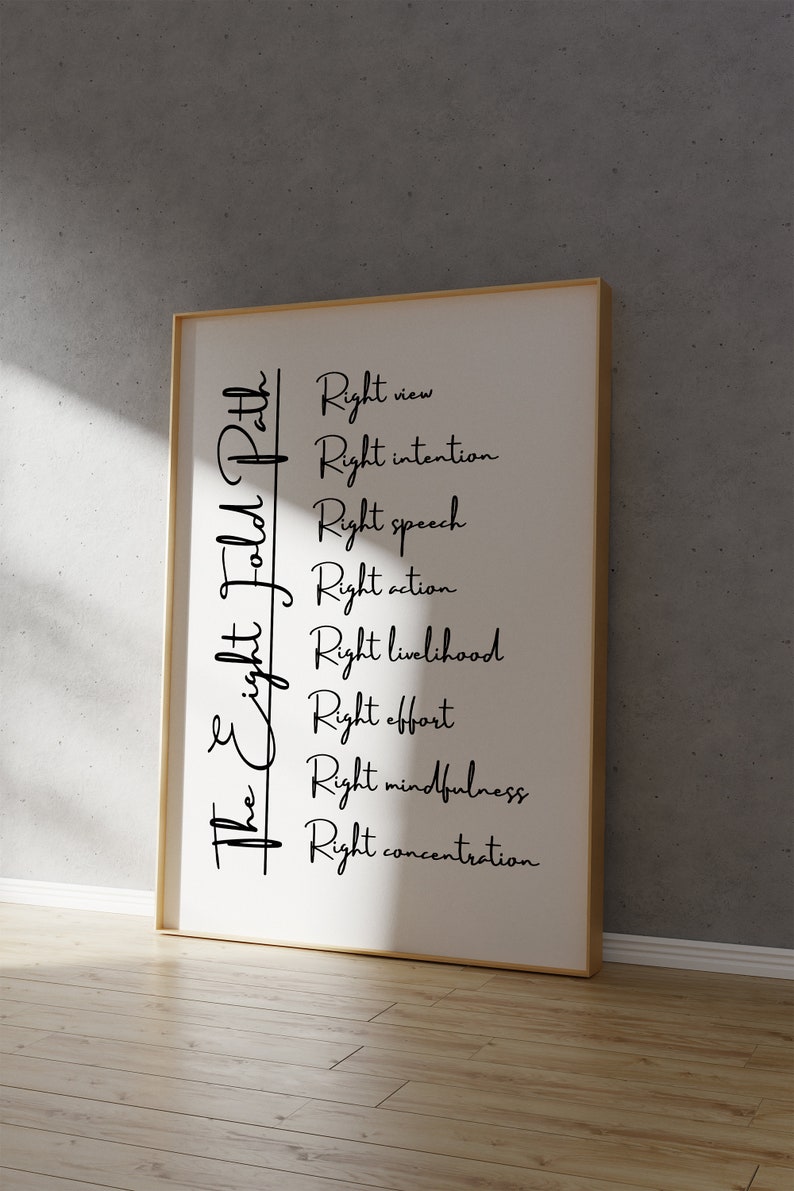 The Eight Fold Path
Right view
Right intention
Right speech
Right action
Right livelihood
Right effort
Right mindfulness
Right concentration